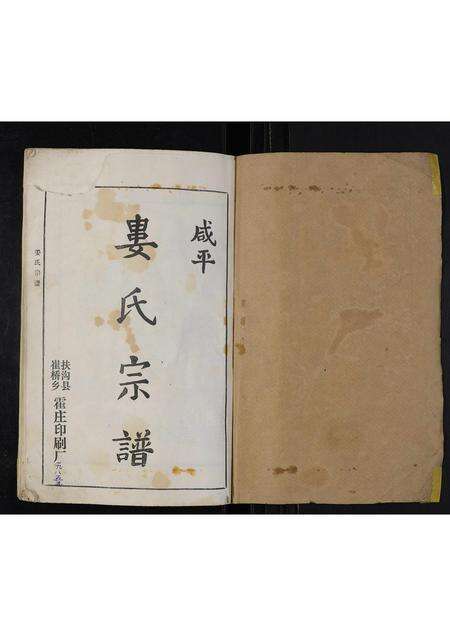 咸平
婁氏宗譜
扶沟县
崔桥乡
霍庄印刷厂
婁氏宗譜